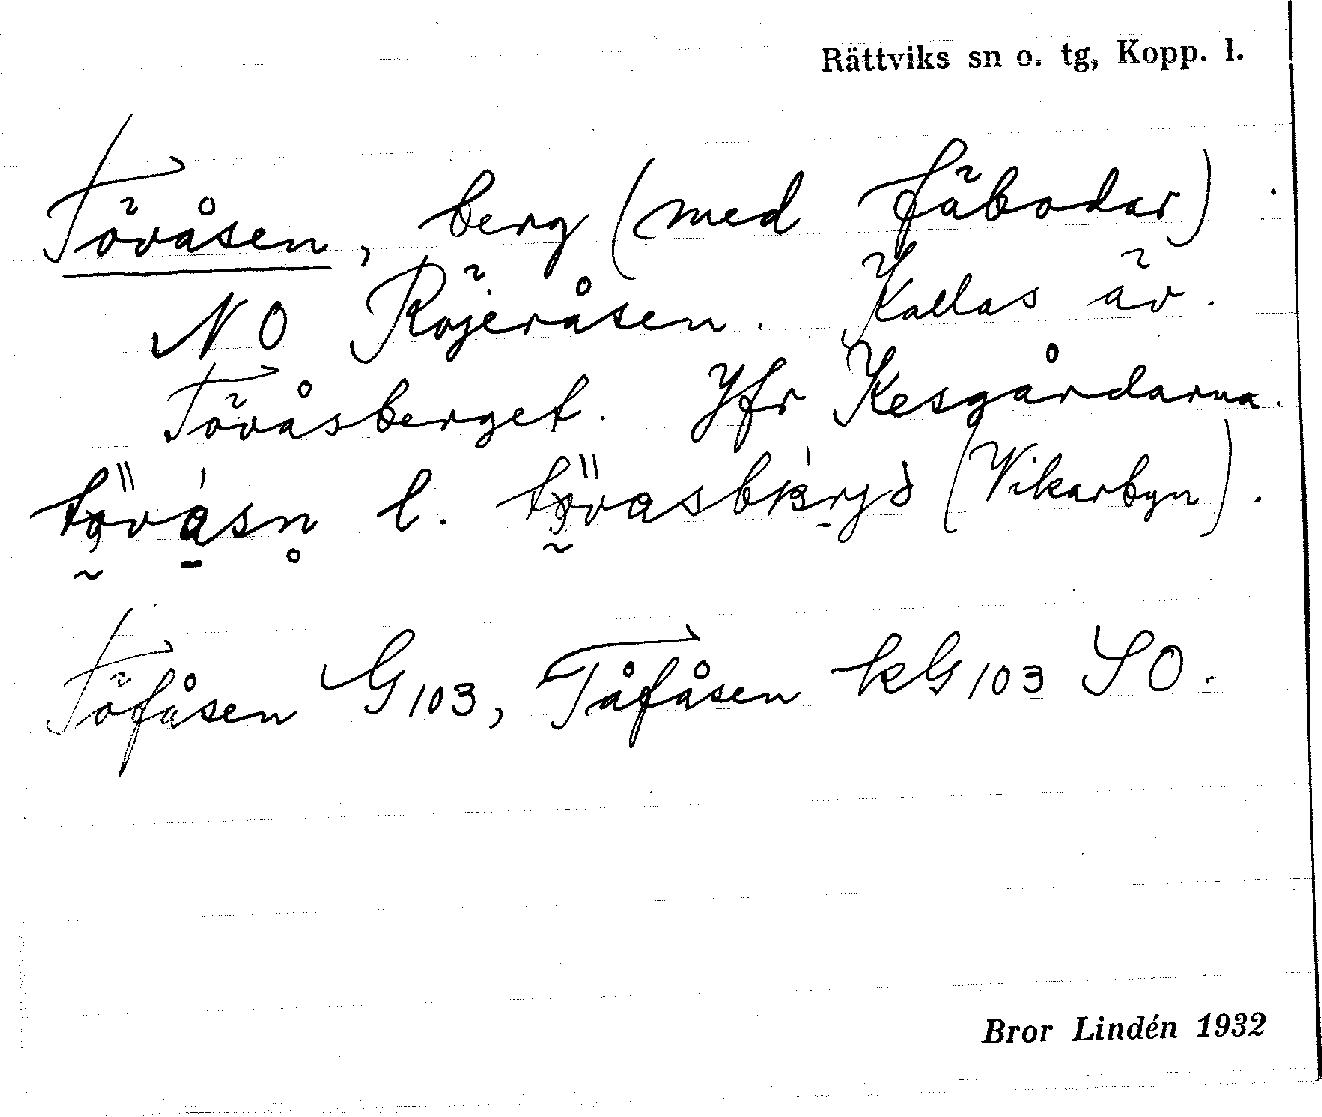 Rättviks sn o. tg, Kopp. l.
Tövåsen, berg (med fäbodar)
NO Röjeråsen. Kallas äv.
Tövåsberget. Jfr Kesgårdarna.
l. (Vikarbyn).
Töfåsen G103, Tåfåsen kG103 SO.
Bror Lindén 1932